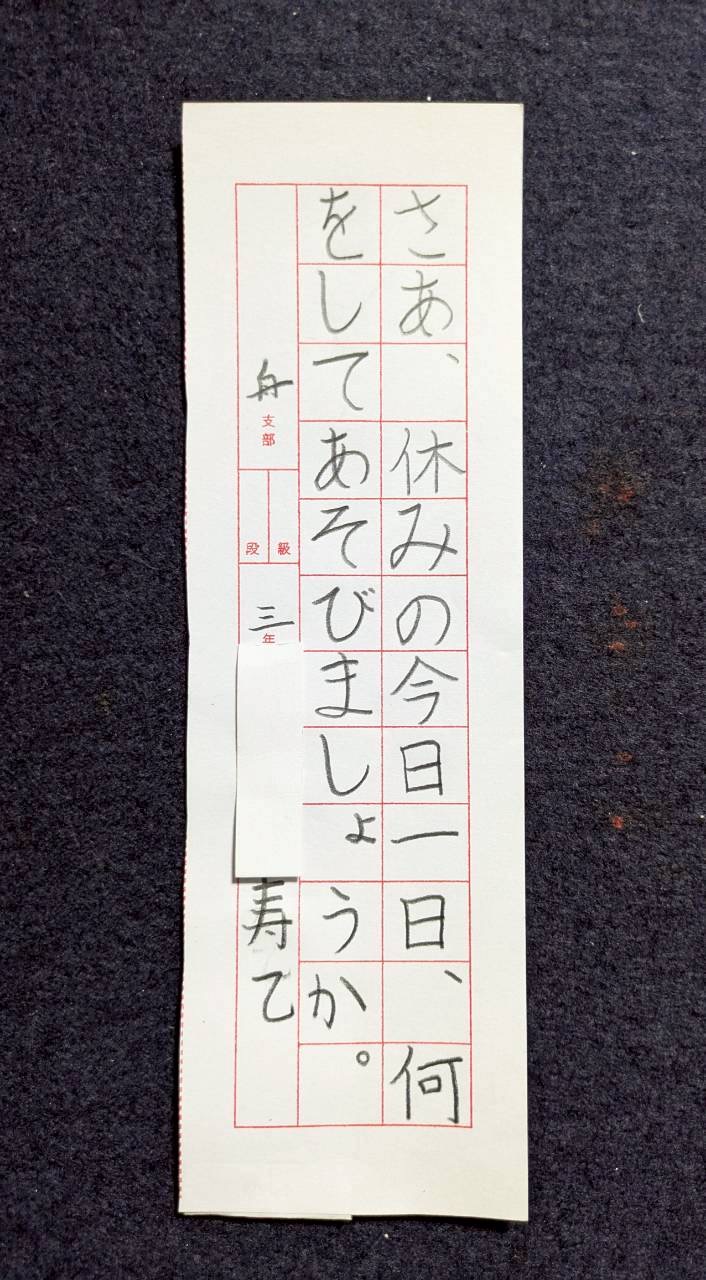 さあ、休みの今日一日、何
をしてあそびましょうか。
舟支部
級
段
三年
寿て